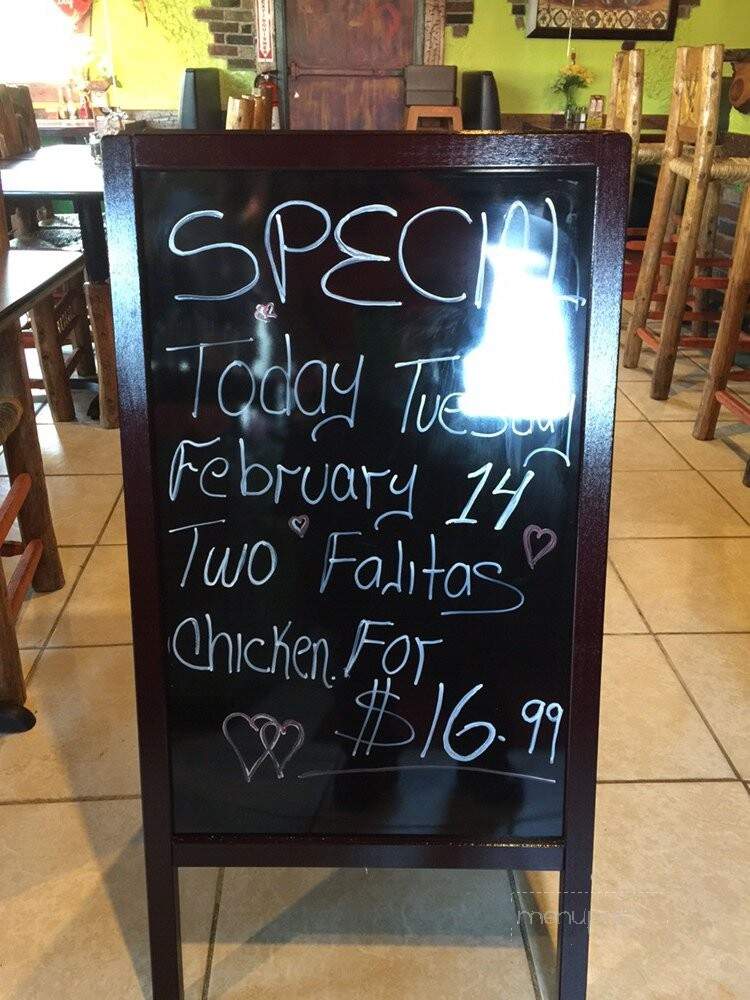 SPECIAL
Today Tuesday
February 14
Two Fajitas
Chicken. For
$16.99